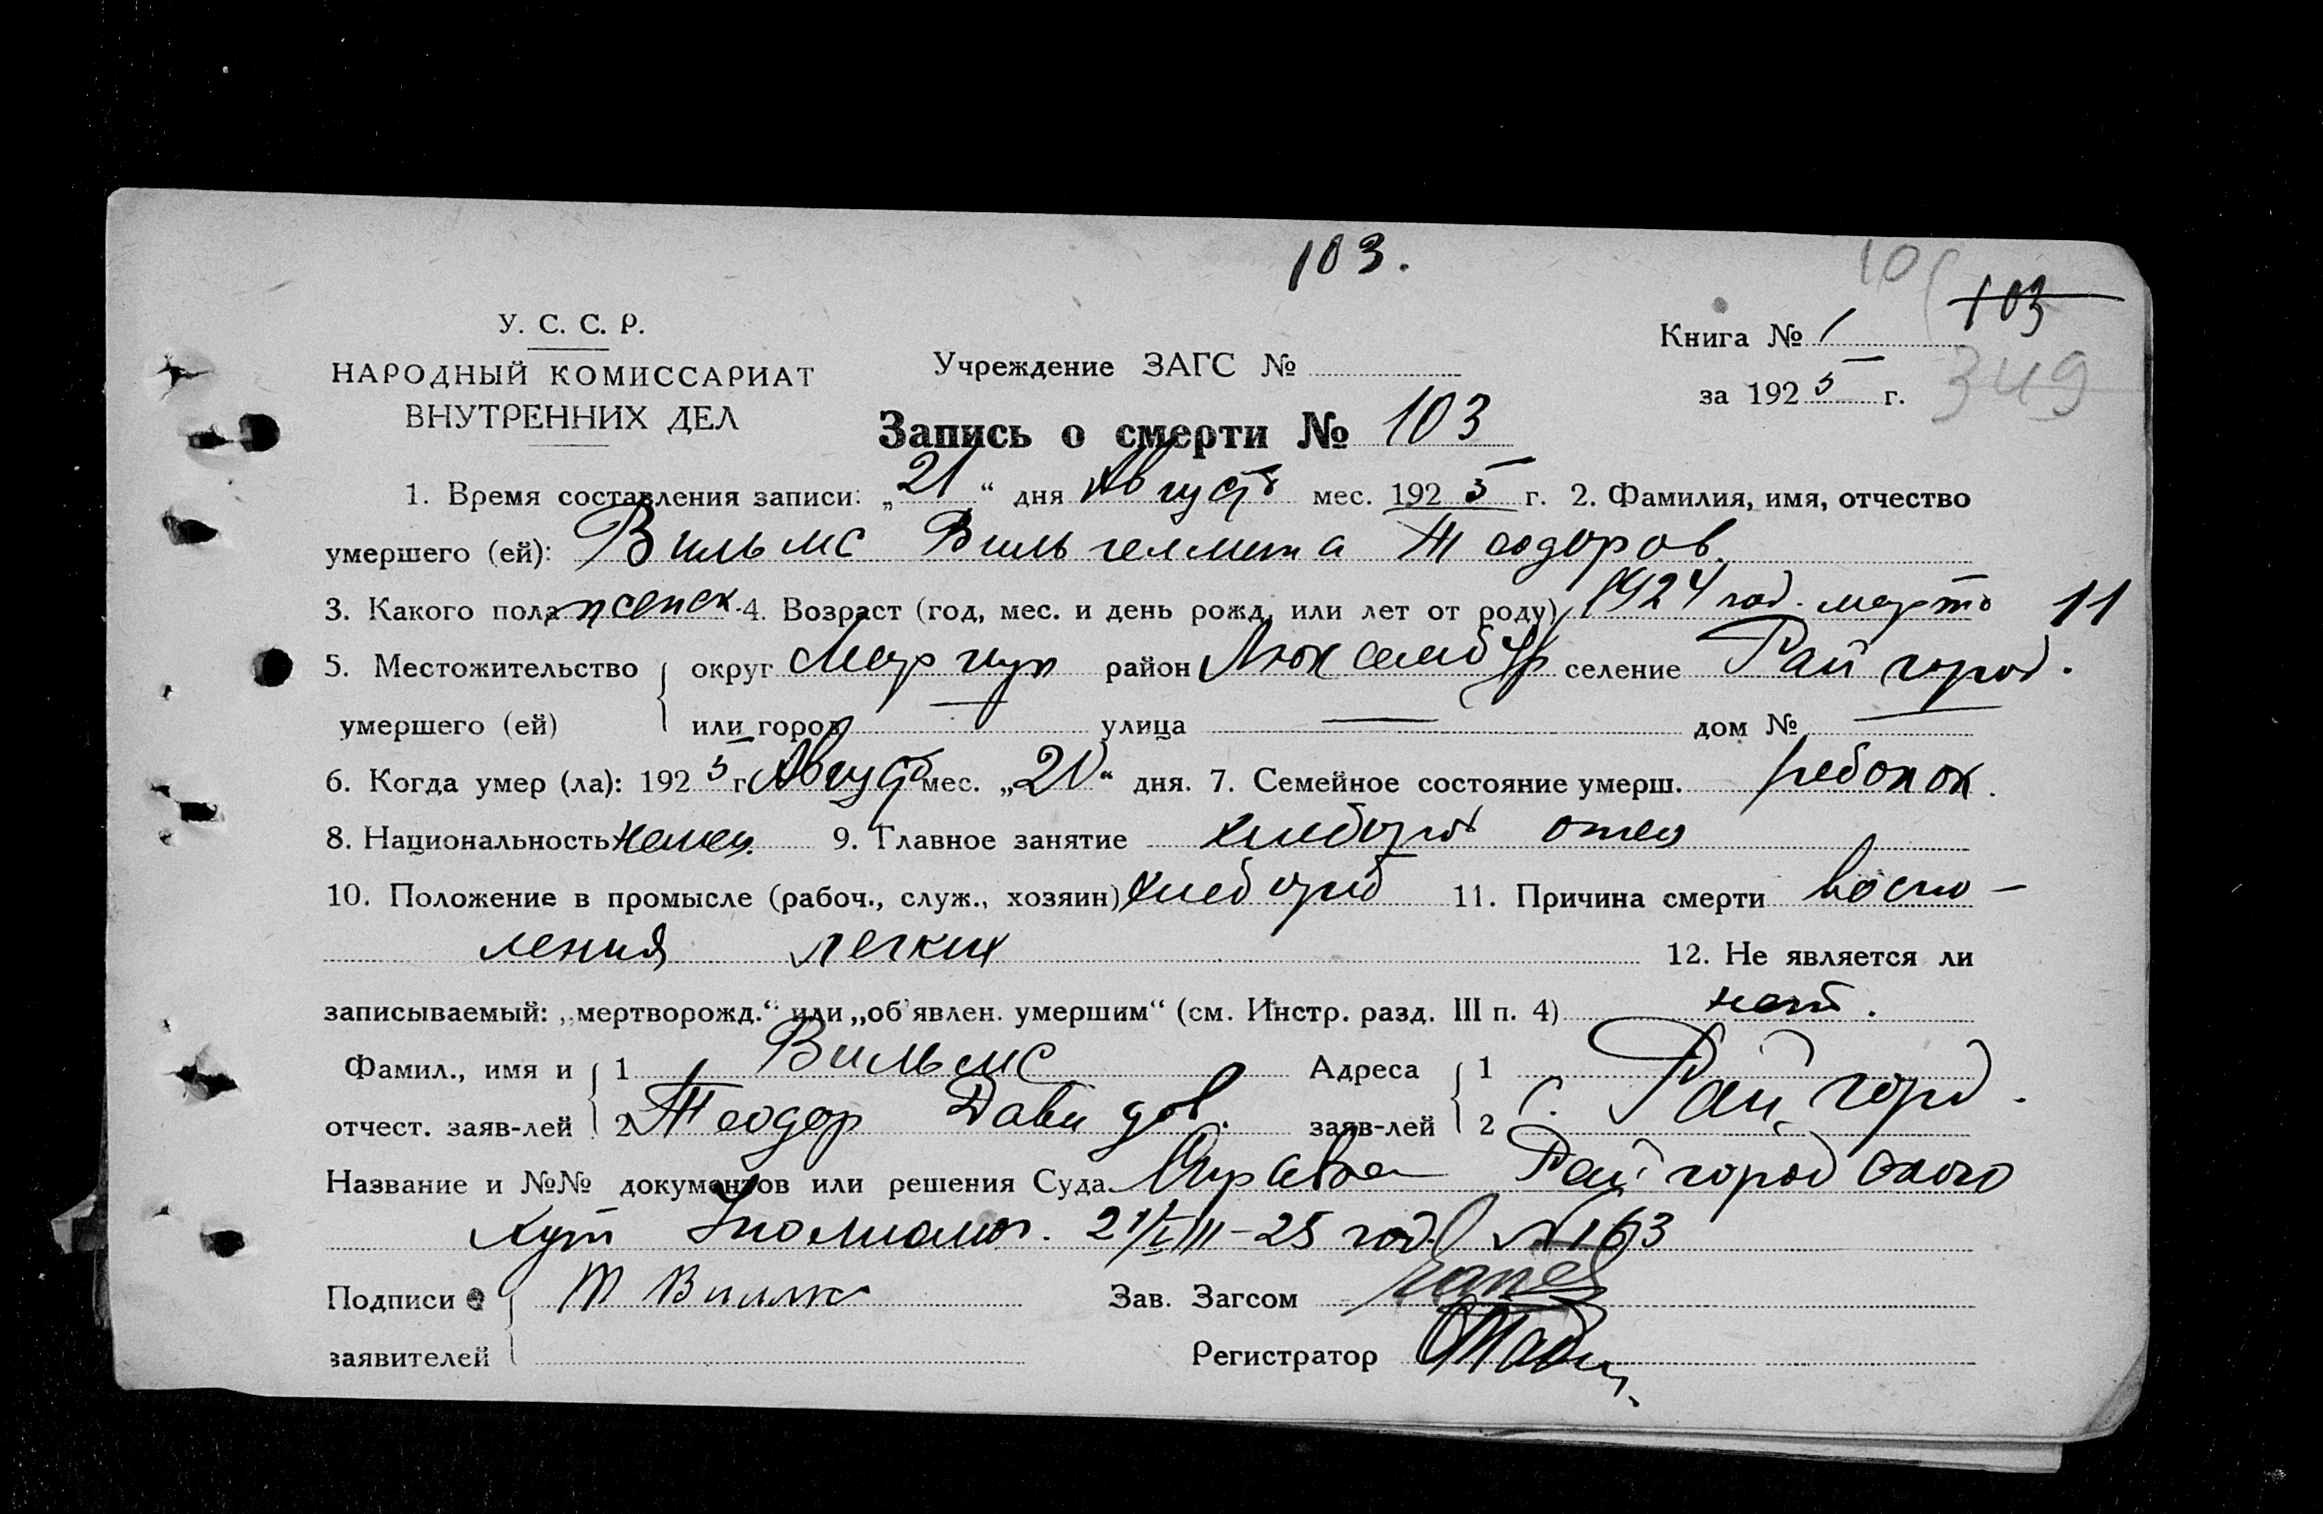 103.
10
103
У. С. С. Р.
Книга № 1
НАРОДНЫЙ КОМИССАРИАТ
Учреждение ЗАГС №
349
за 1925 г.
ВНУТРЕННИХ ДЕЛ
Запись о смерти № 103
1. Время составления записи: „21“ дня Август мес. 1925 г. 2. Фамилия, имя, отчество
умершего (ей): Вильмс Вильгелмина Теодоров.
3. Какого пола женск. 4. Возраст (год, мес. и день рожд. или лет от роду) 1924 год. марта 11
5. Местожительство округ Мариуп район Люксембур селение Райгород.
умершего (ей) или город — улица — дом № —
6. Когда умер (ла): 1925 г. Август мес. „20“ дня. 7. Семейное состояние умерш. ребонок.
8. Национальность немец. 9. Главное занятие хлебороб отец
10. Положение в промысле (рабоч., служ., хозяин) хлебороб 11. Причина смерти воспо-
ления легких 12. Не является ли
записываемый: „мертворожд.“ или „об'явлен. умершим“ (см. Инстр. разд. III п. 4) нет.
Фамил., имя и 1 Вильмс Адреса 1
отчест. заяв-лей 2 Теодор Давидов. заяв-лей 2 с. Райгород.
Название и №№ документов или решения Суда Справка Райгородского
21/VIII-25 год. №163
Подписи Т Вилмс Зав. Загсом
заявителей Регистратор